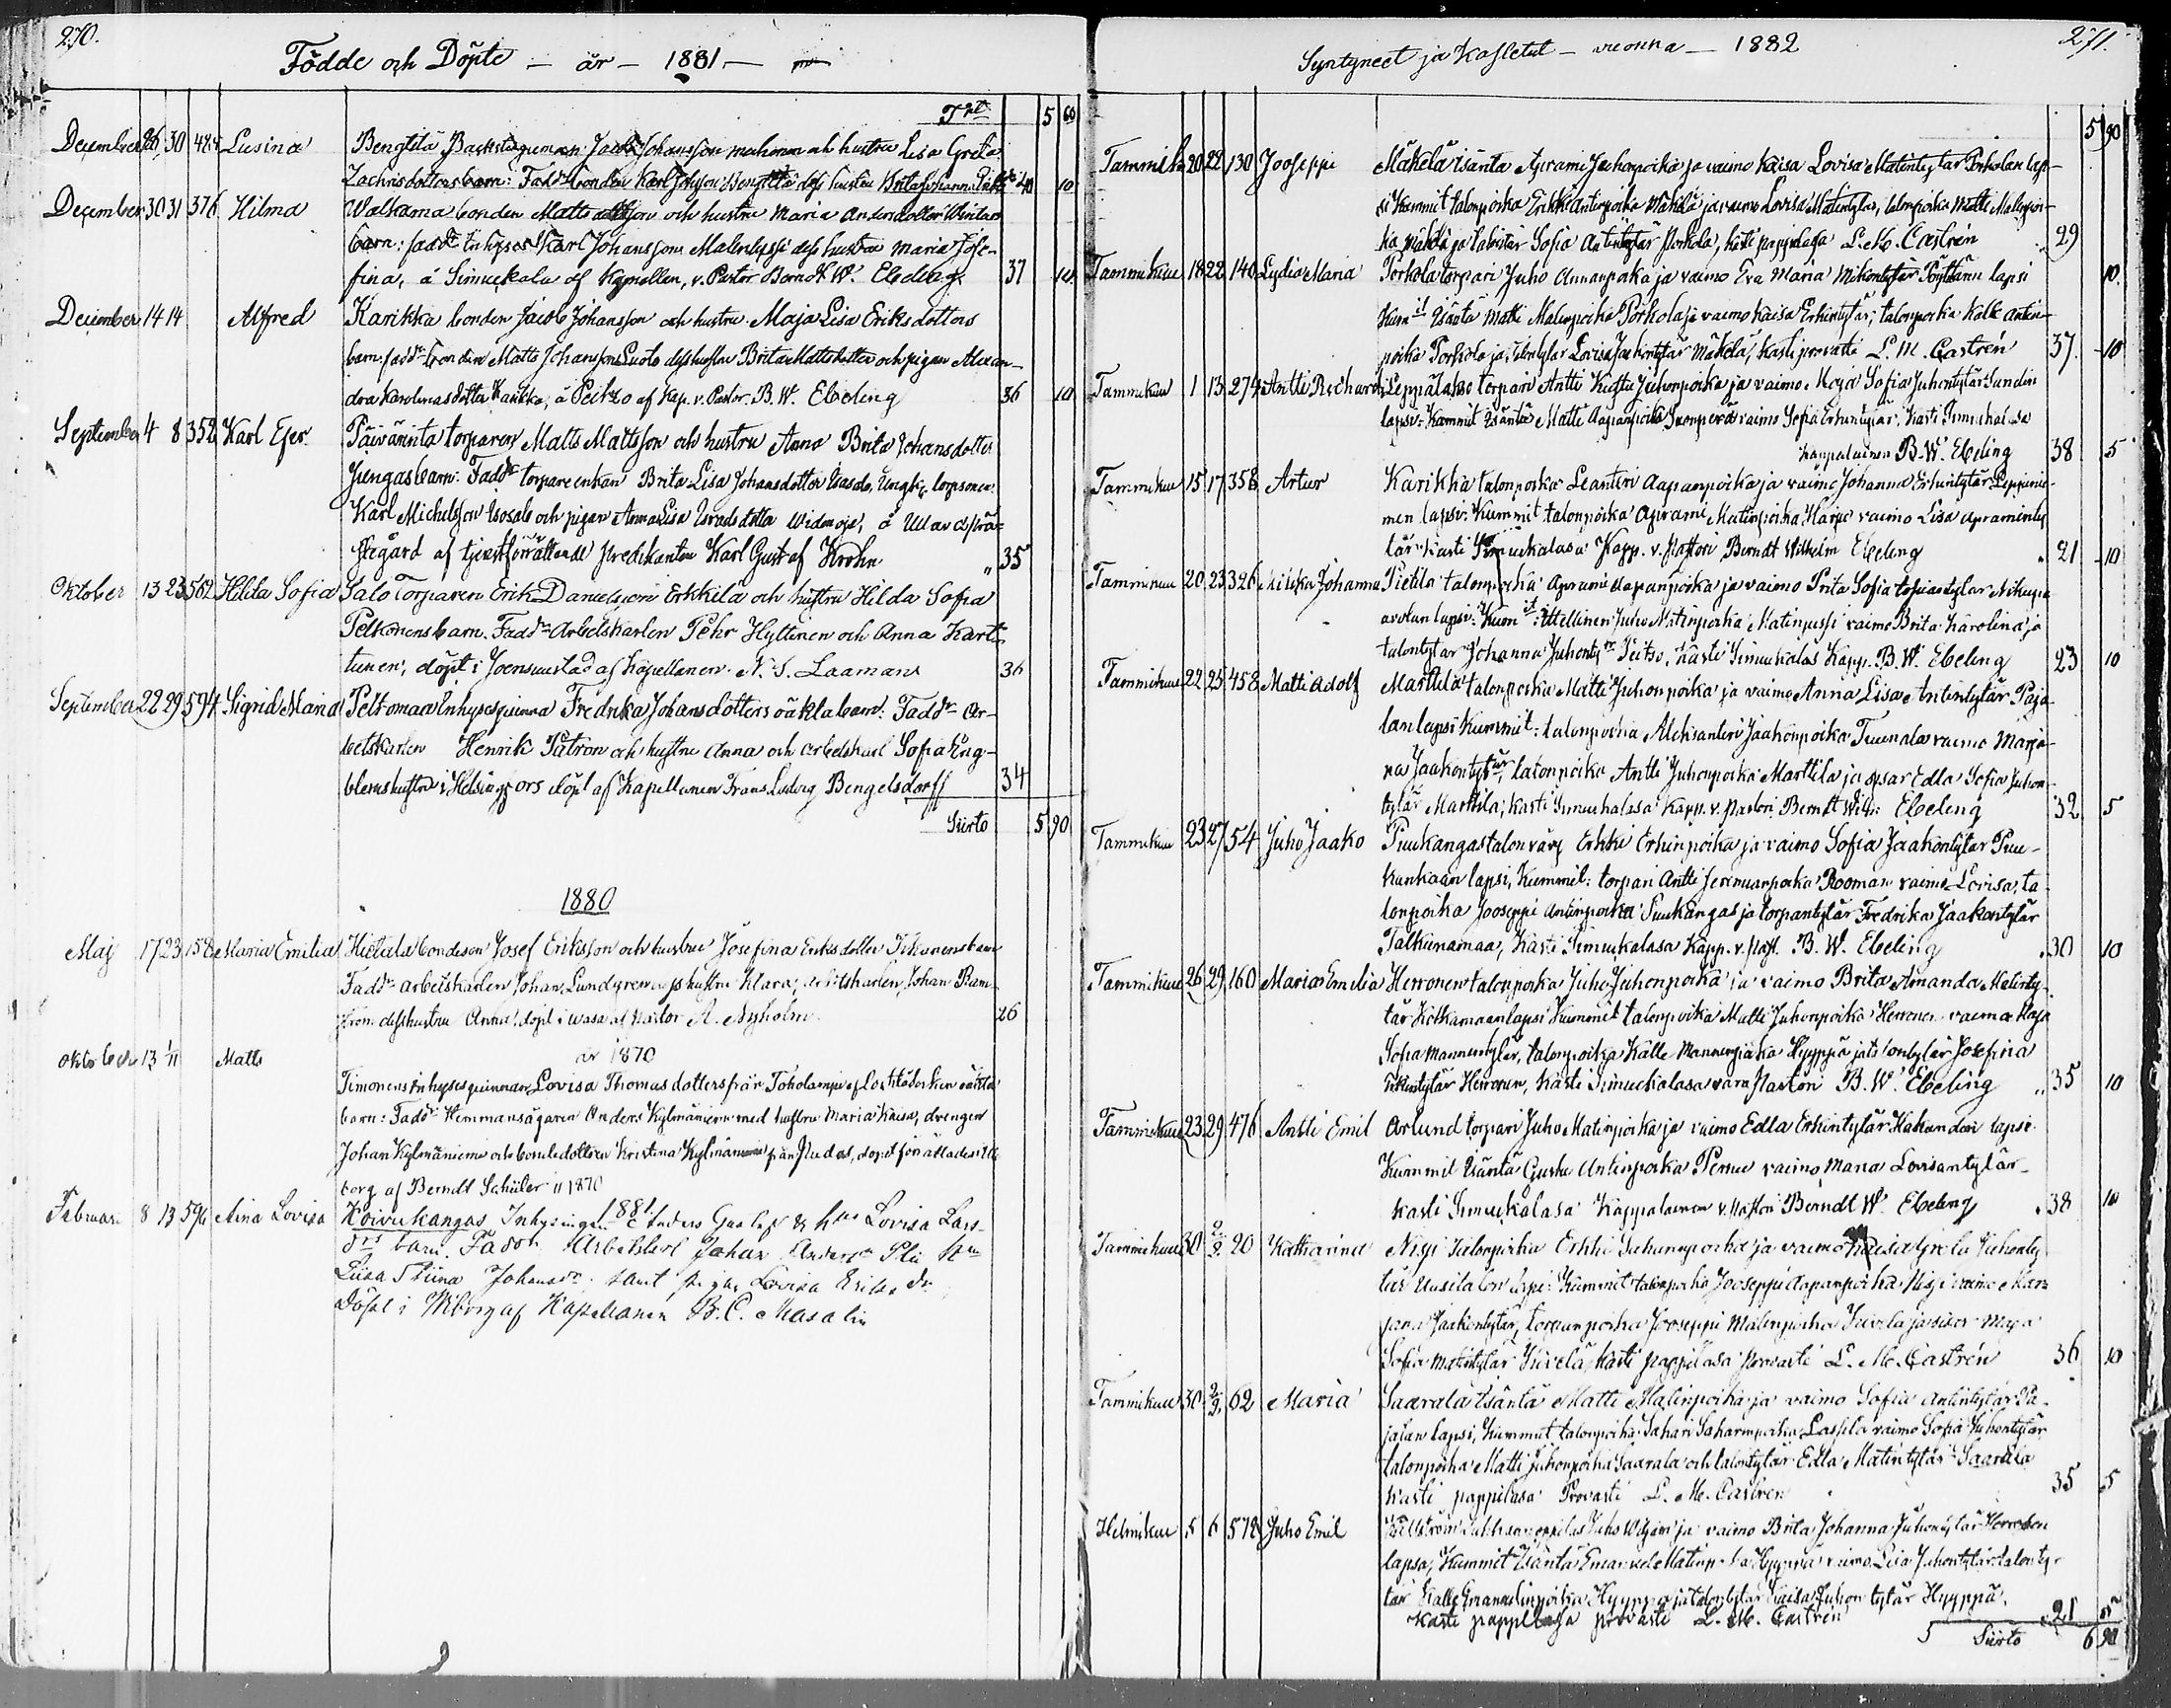 270.
Födde och Döpte - år - 1881 -
Trt 5 60
December 26 30 484 Lusina Bengtila Backstugumannen Jacob Johansson och hustru Lisa Greta
Zachrisdotters barn: Fadd. bonden Karl Johnsson Bengtila dess hustru Brita Johanna 40 10
December 30 31 376 Hilma Walkama bonden Matts Mattsson och hustru Maria Andersdotter
barn: fadd. Inhyses Karl Johansson Matinlassi dess hustru Maria Jose-
fina, å Simuckala af Kapellan, v. Pastor Berndt W. Ebeling 37 10
December 14 14 Alfred Karikka bonden Jacob Johansson och hustru Maja Lisa Eriksdotters
barn. fadd. bonden Matts Johansson Luoto dess hustru Brita Mattsdotter och pigan Alexan-
dra Karolina dotter Karikka, å Peitso af Kap. v. Pastor. B. W. Ebeling 36 10
September 4 8 352 Karl Efer. Päivärinta torparen Matts Mattsson och hustru Anna Brita Johansdotter
Jungas barn: Fadd. torpareenkan Brita Lisa Johansdotter
Karl Michelsson Isosalo och pigan Anna Lisa dotter Widenoja, å Ulava prä-
stgård af tjenstförrättande predikanten Karl Gustaf Krohn " 35
Oktober 13 23 562 Hilda Sofia Salo Torparen Erik Danielsson Erkkilä och hustru Hilda Sofia
Pelkonens barn. Fadd. Arbetskarlen Pehr Hyttinen och Anna Kart-
tunen, döpt i Joensuu stad af kapellanen N. S. Laamans 36
September 22 29 594 Sigrid Maria Peltomaa Inhysesqvinna Fredrika Johansdotters oäkta barn: Fadd. Ar-
betskarlen Henrik Patron och hustru Anna och arbetskarl Sofia Eng-
bloms hustru i Helsingfors döpt af Kapellanen Frans Ludvig Bengelsdorff 34
Siirto 5 90
1880
Maj 17 23 158 Maria Emilia Hietala bondeson Josef Eriksson och hustru Josefina Eriksdotter barn
Fadd. arbetskarlen Johan Lundgren dess hustru Klara, arbetskarlen Johan
dess hustru Anna, döpt i Wasa af Pastor A. Nyholm. 26
år 1870
Oktober 13 1/11 Matts
Timonens Inhysesqvinnan Lovisa Thomasdotters från Toholampi oäkta
barn: Fadd. Hemmansägaren Anders Kylmäniemi med hustru Maria Kaisa, drengen
Johan Kylmäniemi och bondedottren Kristina Kylmäniemi från Pudas, döpt
borg af Berndt Schüler 11 1870
1881.
Februari 8 13 596 Aina Lovisa Koivukangas Inhysingen Anders Gustafs. & hu Lovisa Lars-
drs barn. Faddr Arbetskarl Johan Anders
Liisa Stiina Johansdr. samt pigan Lovisa Eriksdr
Döpt i Wiborg af Kapellanen B. C. Masalin
271.
Syntyneet ja Kastetut - vuonna - 1882
5 90
Tammiku 20 22 130 Jooseppi Mäkelä isäntä Aprami Juhonpoika ja vaimo Kaisa Lovisa Matintytär Porkolan lap-
si Kummit talonpoika Erkki Antinpoika Mäkelä ja vaimo Lovisa Matintytär, talonpoika Matti Matinpoi-
ka Mäkelä ja talontytär Sofia Antintytär Porkola, kasti pappilassa L. M. Castrén 29
Tammikuu 18 22 140 Lydia Maria Porkola torpari Juho Annanpoika ja vaimo Eva Maria Mikontytär lapsi 10
Kumit Isäntä Matti Matinpoika Porkola ja vaimo Kaisa Erkintytär; talonpoika Kalle Antin-
poika Porkola ja talontytär Lovisa Jaakontytär Mäkelä, kasti provasti L. M. Castrén 37. 10
Tammikuu 1 13 274 Antti Richard Leppälakso torpari Antti Kustu Juhonpoika ja vaimo Maja Sofia Juhontytär Sundin
lapsi: Kummit Isäntä Matti Aapanpoika Suonperä vaimo Sofia Erkintytär, Kasti Simukalasa
kappalainen B. W. Ebeling 38 5
Tammikuu 15 17 358 Artur Karikka talonpoika Leanteri Aapanpoika ja vaimo Johanna Erkintytär Leppänie-
men lapsi: Kummit talonpoika Aprami Matinpoika Harju vaimo Lisa Apramenty-
tär Kasti Simukalasa Kapp. v. Pastori Berndt Wilhelm Ebeling 21 10
Tammikuu 20 23 326 Johanna Pietilä talonpoika Aprami Aapanpoika ja vaimo Brita Sofia Topiaantytär
lapsi: Kumit: Juho Matinpoika Matinjussi vaimo Brita Karolina ja
talontytär Johanna Juhonty Peitso, Kasti Simukalas Kapp. B. W. Ebeling 23 10
Tammikuu 22 25 458 Matti Adolf Marttila talonpoika Matti Juhonpoika ja vaimo Anna Lisa Antintytär Paja-
lan lapsi Kummit: talonpoika Aleksanteri Jaakonpoika Tuunala vaimo Marja-
na Jaakontytär, talonpoika Antti Juhonpoika Marttila ja sisar Edla Sofia Juhon-
tytär Marttila; kasti Simukalassa Kapp. v. Pastori Berndt Wilh: Ebeling 32 5
Tammikuu 23 27 54 Juho Jaako Puukangas talonväry Erkki Erkinpoika ja vaimo Sofia Jaakontytär Puu-
kankaan lapsi, Kummit: torpari Antti Jeremianpoika Rooman vaimo Lovisa, ta-
lonpoika Jooseppi Antinpoika Puukangas ja torpantytär Fredrika Jaakontytär
Talkunamaa, Kasti Simukalasa Kapp. v. Past. B. W. Ebeling 30 10
Tammikuu 26 29 160 Maria Emilia Herronen talonpoika Juho Juhonpoika ja vaimo Brita Amanda Matinty-
tär Kotkamaan lapsi Kummit talonpoika Matti Juhonpoika Herronen vaimo Maja
Sofia Mannentytär, talonpoika Kalle Mannenpoika Hyyppä ja talontytär Josefina
Erkintytär Herronen, kasti Simukalasa vara Pastori B. W. Ebeling " 35 10
Tammikuu 23 29 476 Antti Emil Arlund torpari Juho Matinpoika ja vaimo Edla Erkintytär Hakundin lapsi
Kummit Isäntä Gustu Antinpoika Pernu vaimo Maria Lovisantytär
kasti Simukalasa Kappalainen v. Pastori Berndt W. Ebeling 38 10
Tammikuu 30 2/2 20 Katharina Nisi talonpoika Erkki Juhonpoika ja vaimo Kaisa Greta Juhonty-
tär Uusitalon lapsi: Kummit talonpoika Jooseppi Aapanpoika Nisi vaimo Mar-
jana Jaakontytär, torpanpoika Jooseppi Matinpoika Yrivelä ja sisar Maja
Sofia Matintytär kasti pappilasa Provasti L. M. Castrén 36 10
Tammikuu 30 2/2 62 Maria Saarala Isäntä Matti Matinpoika ja vaimo Sofia Antintytär Pa-
jalan lapsi, Kummit talonpoika Sakari Sakarinpoika Lassila vaimo Sofia Juhontytär
talonpoika Matti Juhonpoika Saarala och talontytär Edla Matintytär Saarala
kasti pappilasa Provasti L. M. Castren 35 5
Helmikuu 5 6 578 Juho Emil Juho ja vaimo Brita Johanna Juhontytär Herronen
lapsi, Kummit Isäntä Emanuel Matinpoika Hyyppä vaimo Lisa Juhontytär
Kalle Emanuelinpoika Hyyppä ja talontytär Kaisa Juhontytär Hyyppä.
Kasti pappilassa provasti L. M. Castrén 21
Siirto 6 90